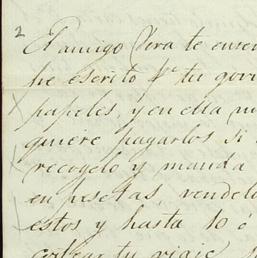 2
El amigo Vera te enseñ
he escrito pª tu gov
papeles, y en ella m
quiere pagarlos si
recogelo y manda
en pesetas, vendelo
estos y hasta 10 ó
costear tu viaje